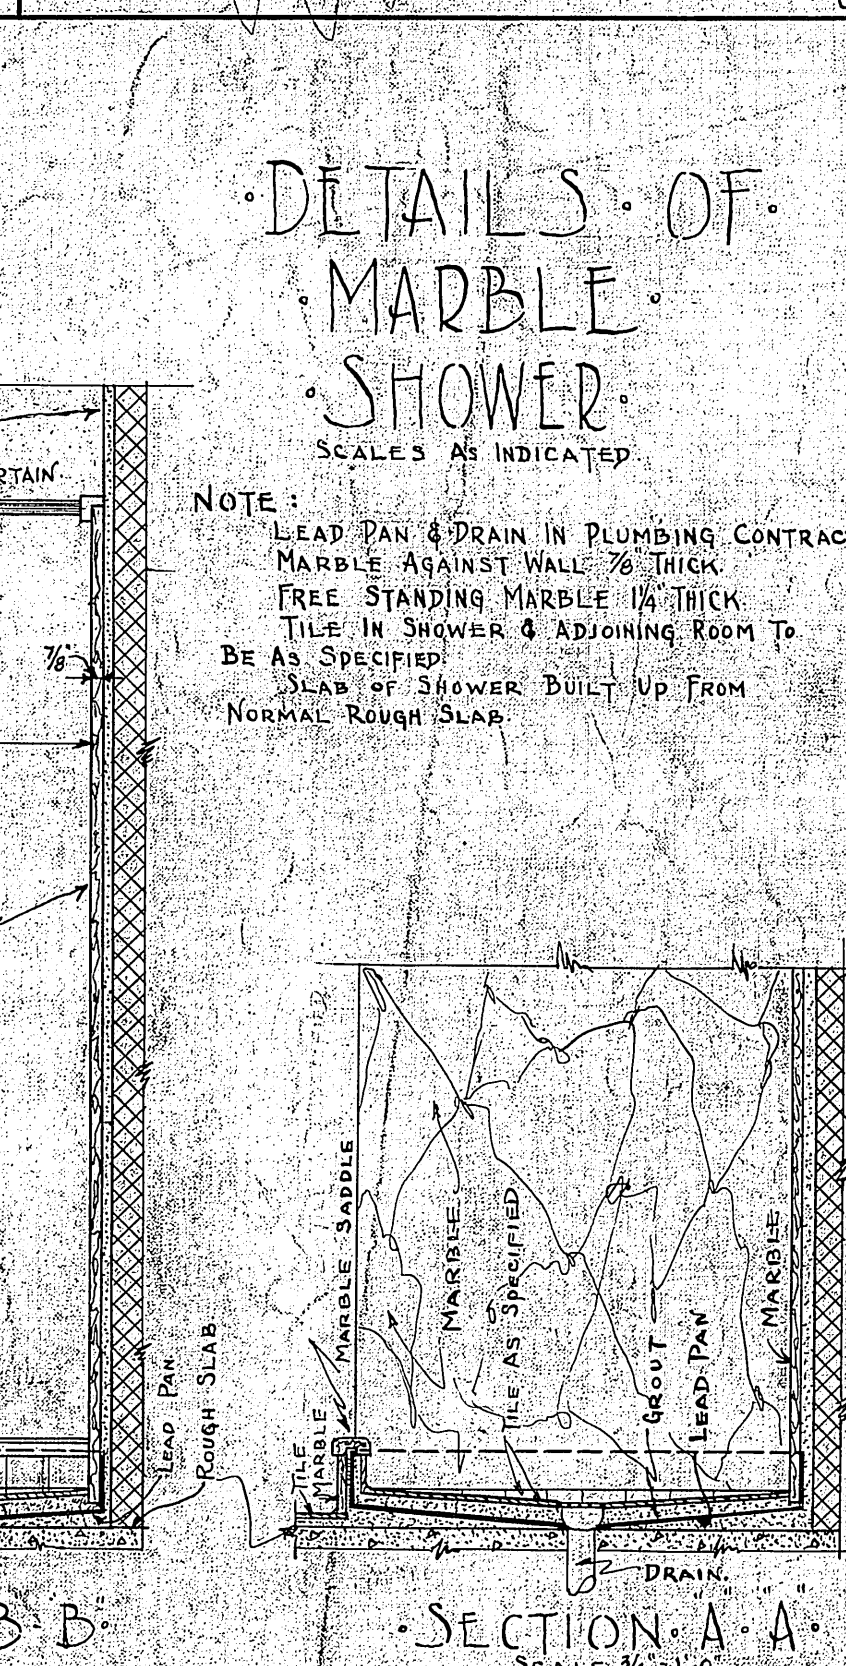 DETAILS OF
MARBLE
SHOWER
SCALES AS INDICATED.
RTAIN
NOTE:
LEAD PAN & DRAIN IN PLUMBING CONTRAC
MARBLE AGAINST WALL 7/8" THICK.
FREE STANDING MARBLE 1 1/4" THICK.
TILE IN SHOWER & ADJOINING ROOM TO
BE AS SPECIFIED.
SLAB OF SHOWER BUILT UP FROM
NORMAL ROUGH SLAB.
7/8"
LEAD PAN
ROUGH SLAB
TILE
MARBLE
MARBLE SADDLE
MARBLE
TILE AS SPECIFIED
GROUT
LEAD PAN
MARBLE
DRAIN.
B-B"
SECTION "A"-"A"
SCALE 3/4"=1'-0"